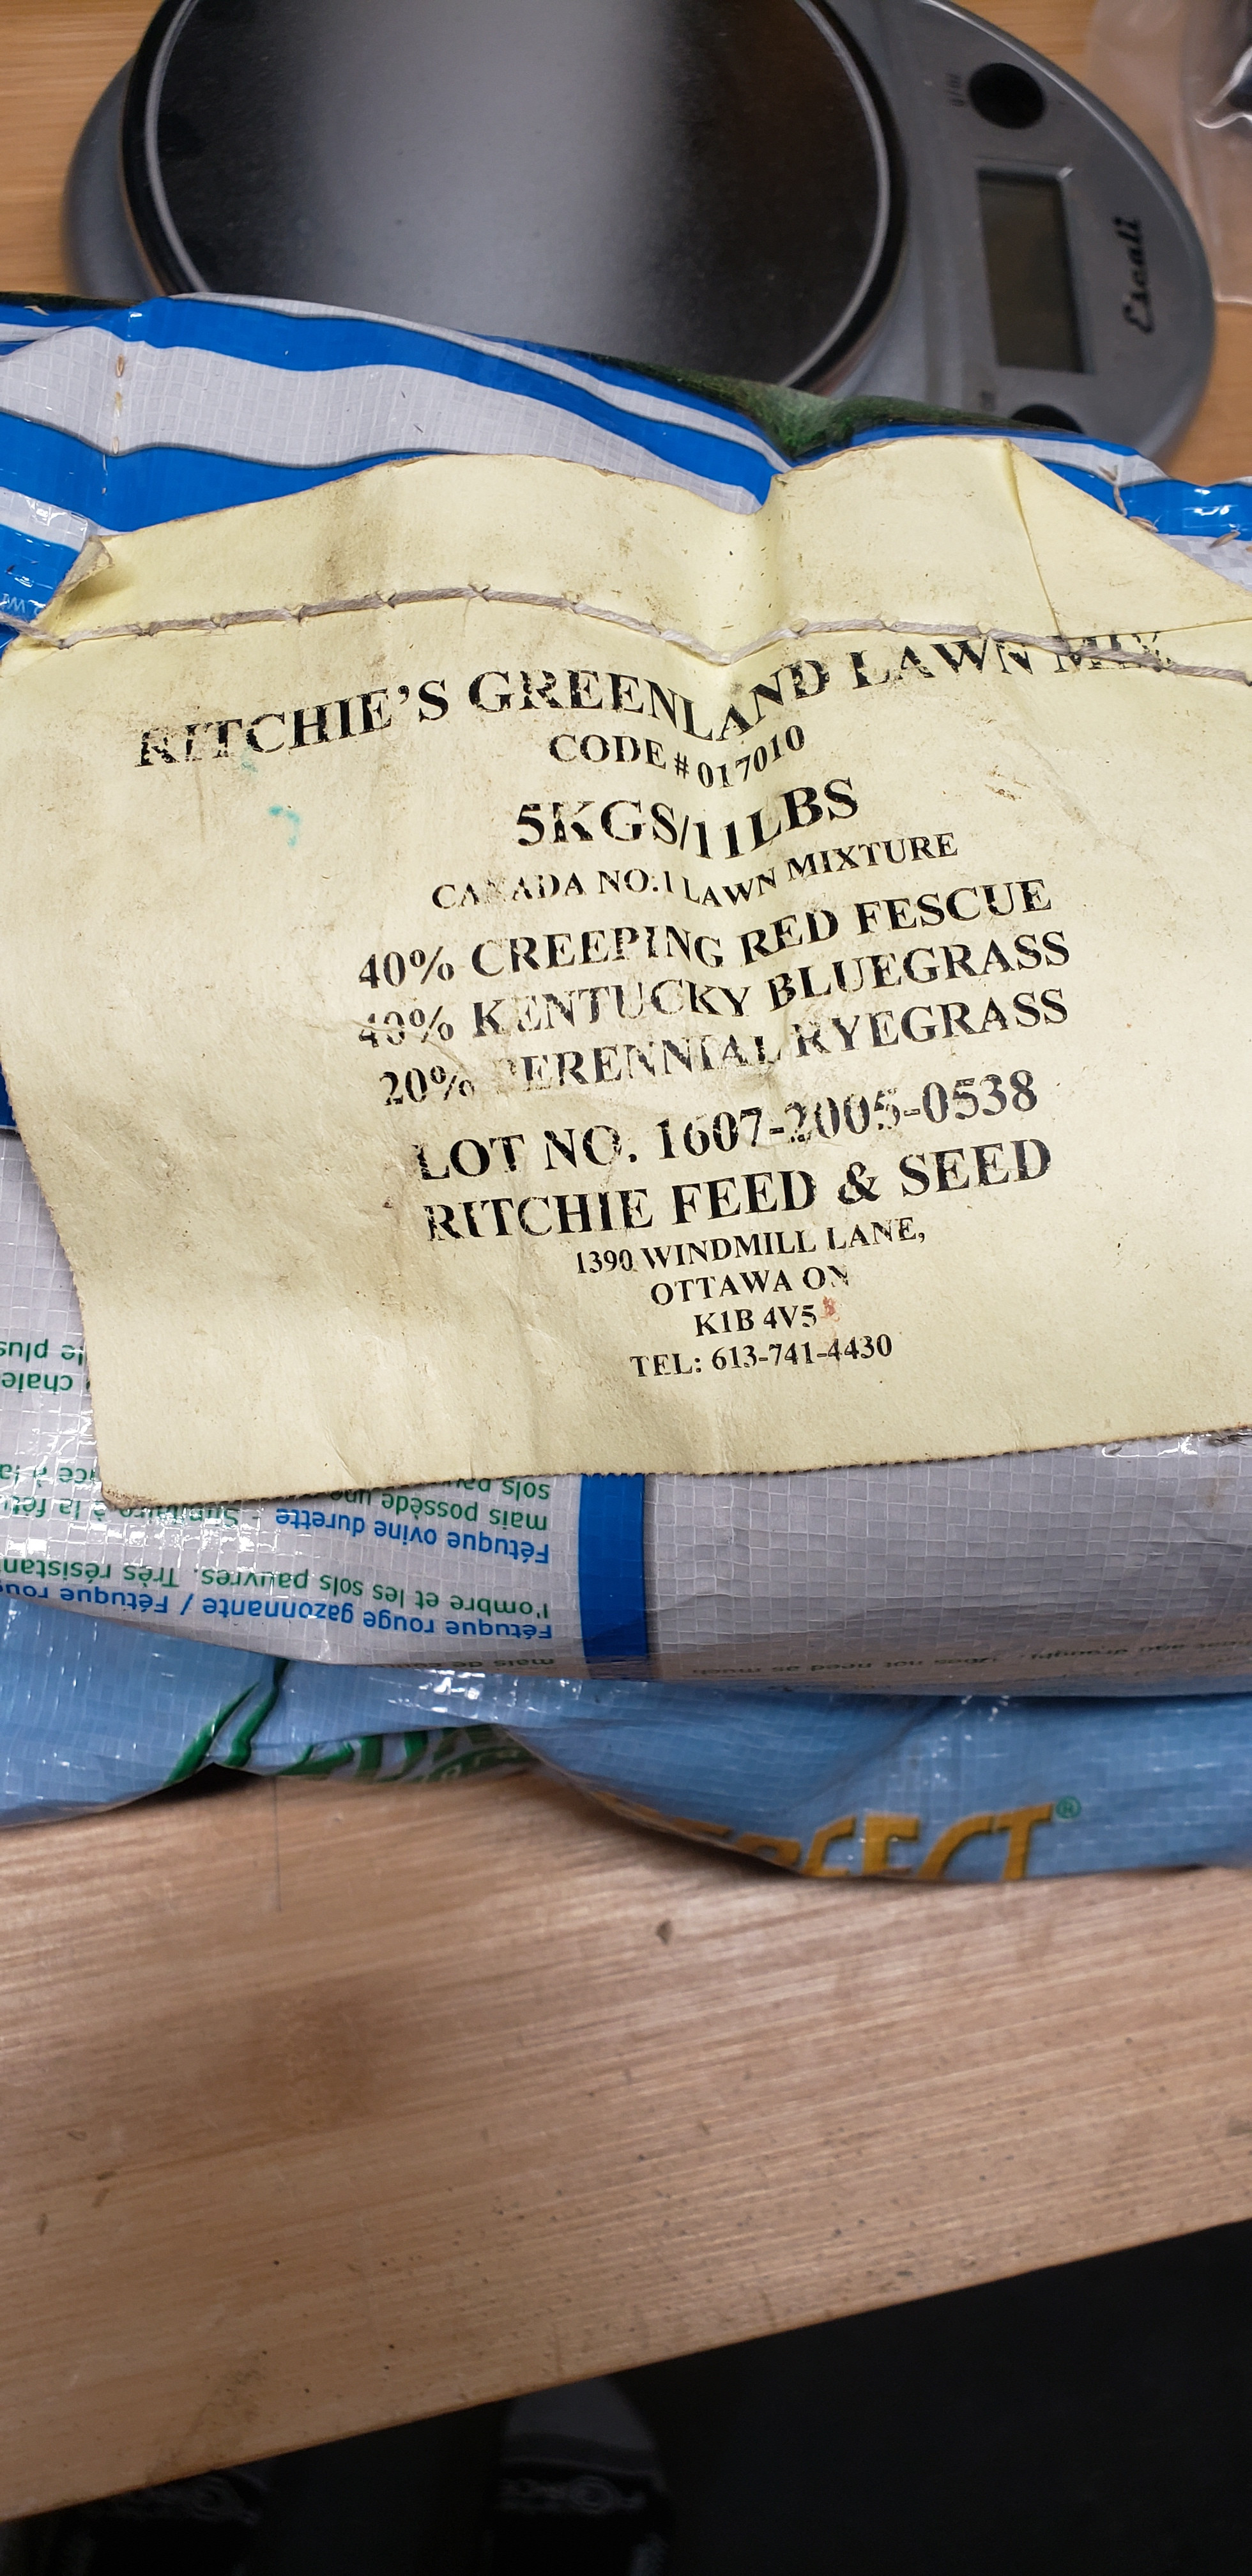 Escali
RITCHIE'S GREENLAND LAWN MIX
CODE #017010
5KGS/11LBS
CANADA NO.1 LAWN MIXTURE
40% CREEPING RED FESCUE
40% KENTUCKY BLUEGRASS
20% PERENNIAL RYEGRASS
LOT NO. 1607-2005-0538
RITCHIE FEED & SEED
1390 WINDMILL LANE,
OTTAWA ON
K1B 4V5
TEL: 613-741-4430
plus
sols
mais possède une
Fétuque ovine durette - à la
l'ombre et les sols pauvres. Très
Fétuque rouge gazonnante / Fétuque
mais de
not need as much